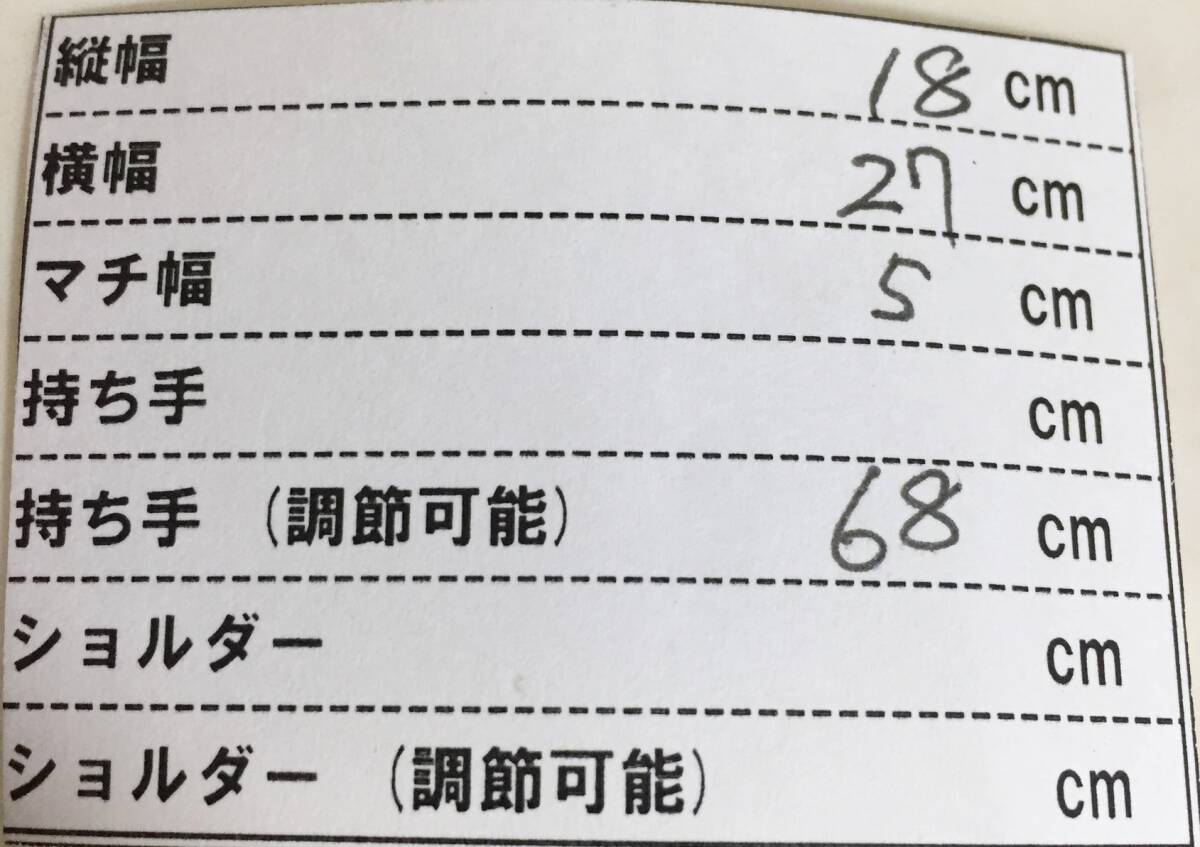 縦幅 18 cm
横幅 27 cm
マチ幅 5 cm
持ち手 cm
持ち手 (調節可能) 68 cm
ショルダー cm
ショルダー (調節可能) cm